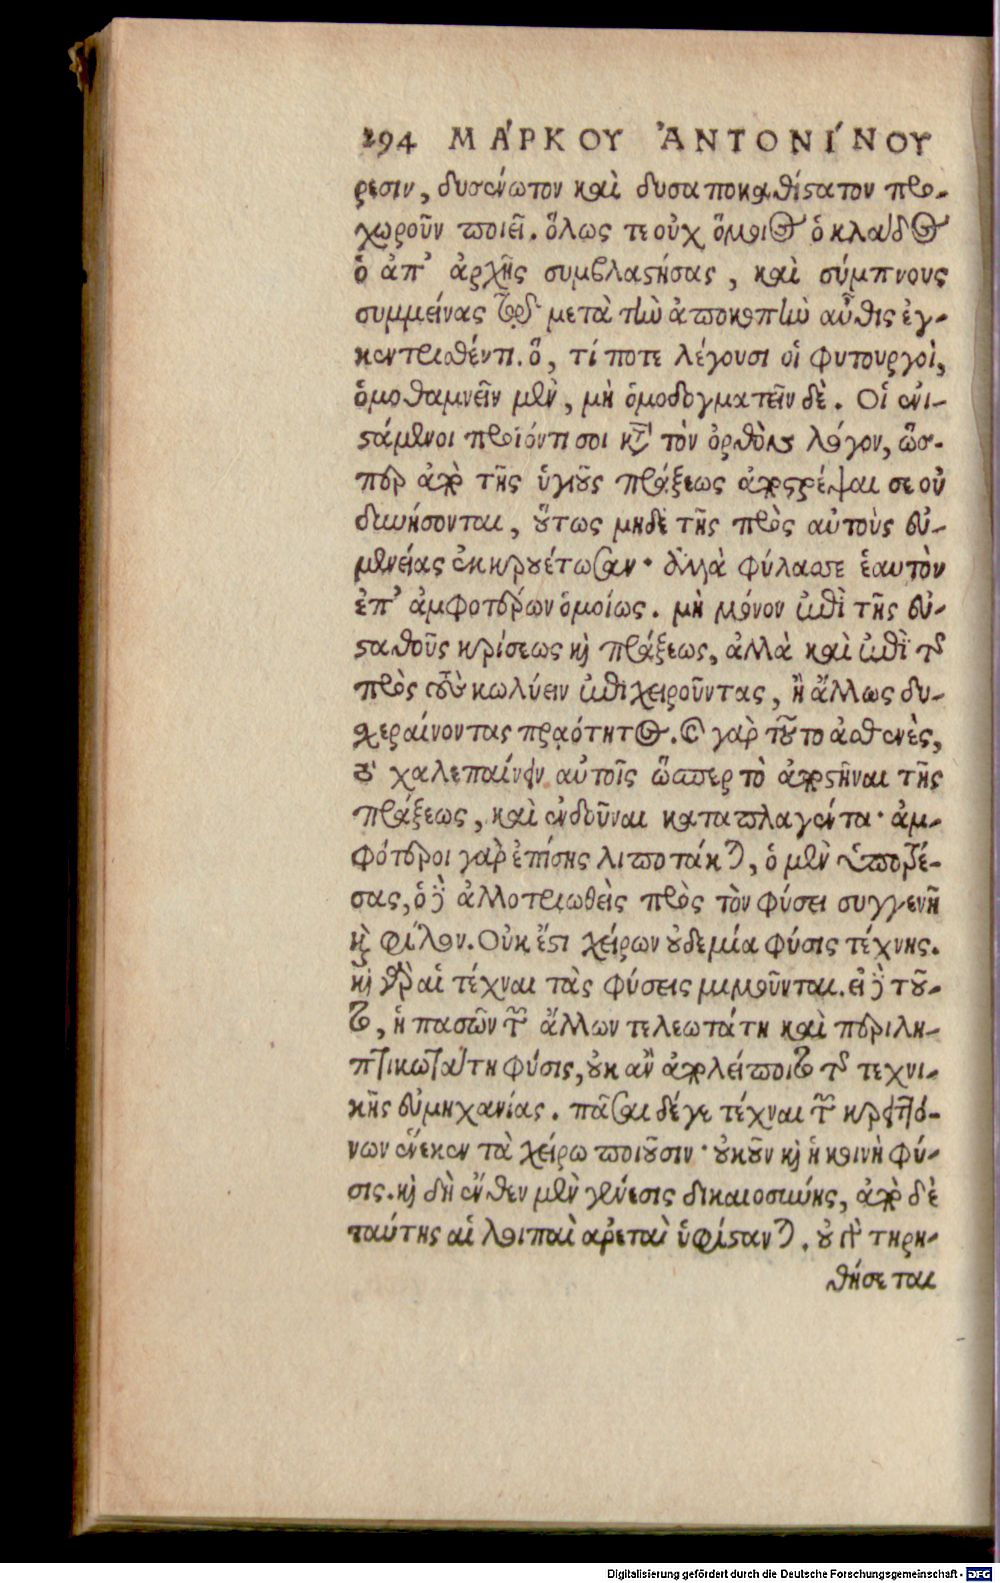 294 ΜΆΡΚΟΥ ἈΝΤΟΝΊΝΟΥ
ρεσιν, δυσένωτον καὶ δυσαποκαθίστατον προ-
χωροῦν ποιεῖ. ὅλως τε οὐχ ὅμοιος ὁ κλάδος
ὁ ἀπ' ἀρχῆς συμβλαστήσας, καὶ σύμπνους
συμμείνας τῷ μετὰ τὴν ἀποκοπὴν αὖθις ἐγ-
κεντρισθέντι. ὅ, τί ποτε λέγουσι οἱ φυτουργοὶ,
ὁμοθαμνεῖν μὲν, μὴ ὁμοδογματεῖν δὲ. Οἱ ἐνι-
στάμενοι προϊόντι σοι κατὰ τὸν ὀρθὸν λόγον, ὥσ-
περ ἀπὸ τῆς ὑγιοῦς πράξεως ἀποστρέψαι σε οὐ
δυνήσονται, οὕτως μηδὲ τῆς πρὸς αὐτοὺς εὐ-
μενείας ἐκκρουέτωσαν· ἀλλὰ φύλασσε ἑαυτὸν
ἐπ' ἀμφοτέρων ὁμοίως. μὴ μόνον ἐπὶ τῆς εὐ-
σταθοῦς κρίσεως καὶ πράξεως, ἀλλὰ καὶ ἐπὶ τῆς
πρὸς τοὺς κωλύειν ἐπιχειροῦντας, ἢ ἄλλως δυ-
χεραίνοντας πραότητος. καὶ γὰρ τοῦτο ἀσθενὲς,
τὸ χαλεπαίνειν αὐτοῖς ὥσπερ τὸ ἀποστῆναι τῆς
πράξεως, καὶ ἐνδοῦναι καταπλαγέντα· ἀμ-
φότεροι γὰρ ἐπίσης λιποτάκται, ὁ μὲν ὑποτρέ-
σας, ὁ δὲ ἀλλοτριωθεὶς πρὸς τὸν φύσει συγγενῆ
καὶ φίλον. Οὐκ ἔστι χείρων οὐδεμία φύσις τέχνης.
καὶ γὰρ αἱ τέχναι τὰς φύσεις μιμοῦνται. εἰ δὲ τοῦ-
το, ἡ πασῶν τῶν ἄλλων τελεωτάτη καὶ περιλη-
πτικωτάτη φύσις, οὐκ ἂν ἀπολείποιτο τῆς τεχνι-
κῆς εὐμηχανίας. πᾶσαι δέ γε τέχναι τῶν κρειττό-
νων ἕνεκεν τὰ χείρω ποιοῦσιν· οὐκοῦν καὶ ἡ κοινὴ φύ-
σις. καὶ δὴ ἔνθεν μὲν γένεσις δικαιοσύνης, ἀπὸ δὲ
ταύτης αἱ λοιπαὶ ἀρεταὶ ὑφίστανται. οὐ γὰρ τηρη-
θήσεται
Digitalisierung gefördert durch die Deutsche Forschungsgemeinschaft - DFG